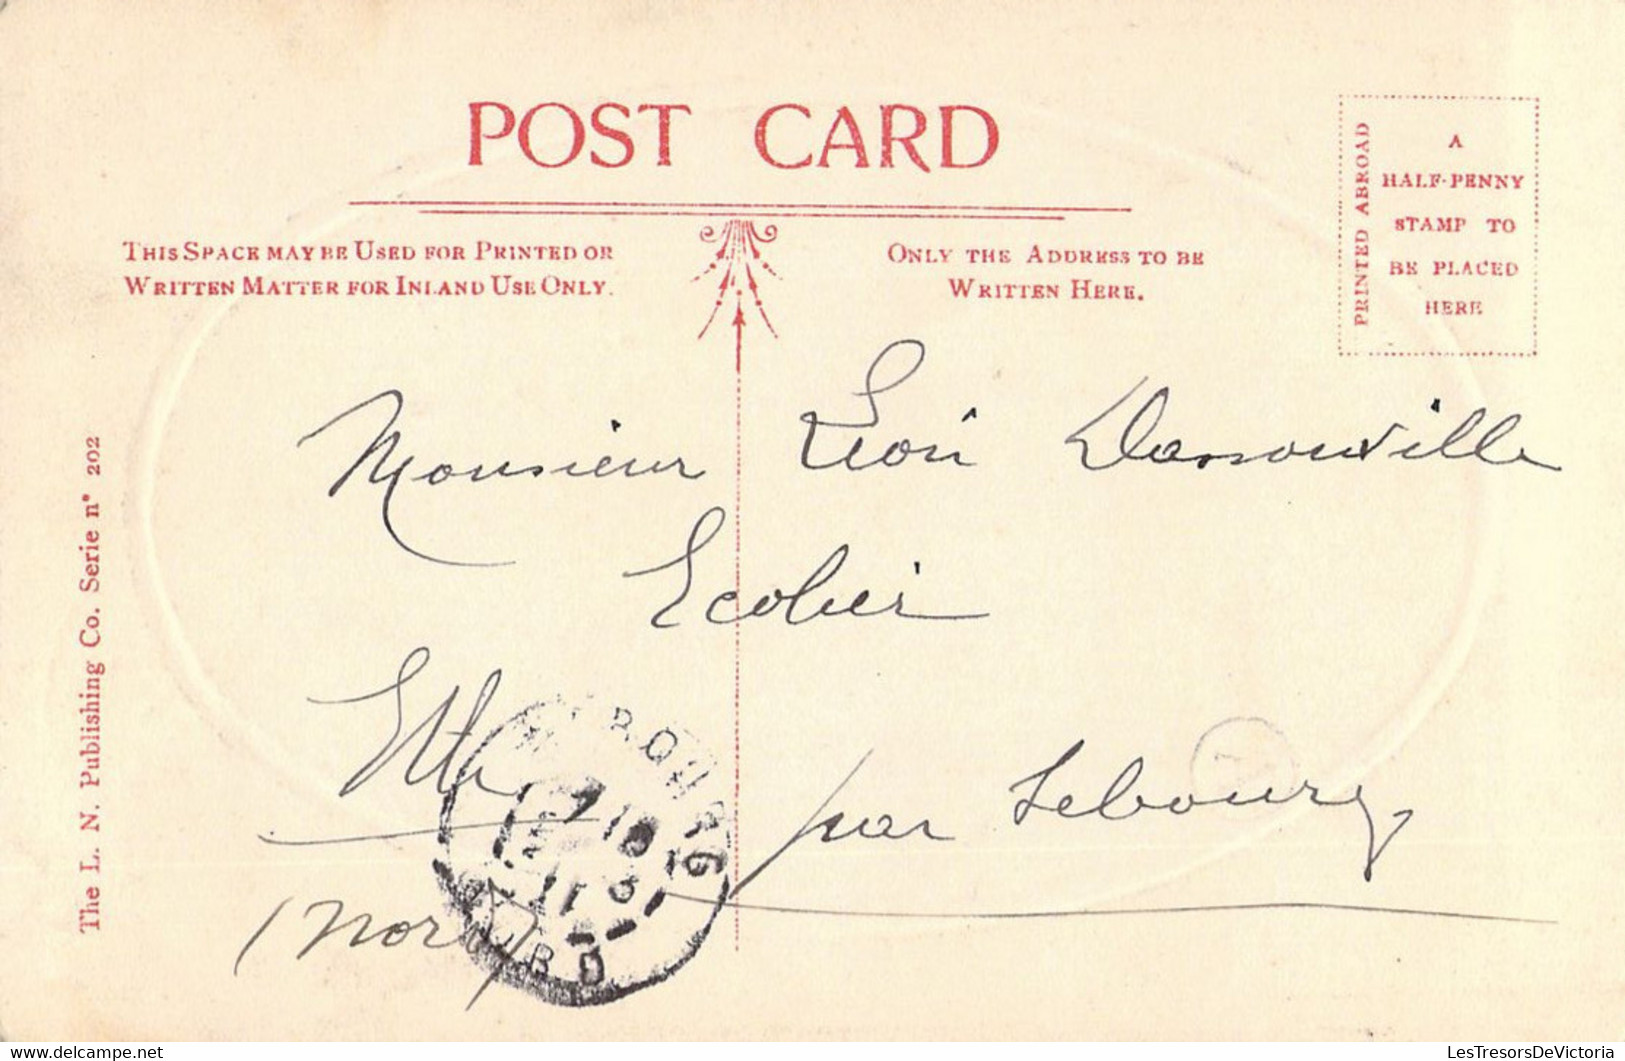 POST CARD
THIS SPACE MAY BE USED FOR PRINTED OR
WRITTEN MATTER FOR INLAND USE ONLY.
ONLY THE ADDRESS TO BE
WRITTEN HERE.
PRINTED ABROAD
A
HALF-PENNY
STAMP TO
BE PLACED
HERE
Monsieur Léon
Ecolier
par Lebourg
(Nord)
The L. N. Publishing Co. Serie n° 202
delcampe.net
LesTresorsDeVictoria